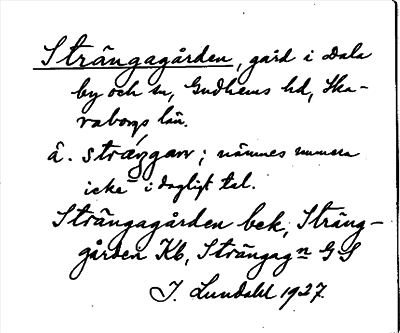 Strängagården, gård i Dala
by och sn, Gudhems hd, Ska-
raborgs län.
å. stráŋgaɴ; nämnes numera
icke i dagligt tal.
Strängagården bek, Sträng-
gården Kb, Strängagn GS
J. Lundahl 1927.